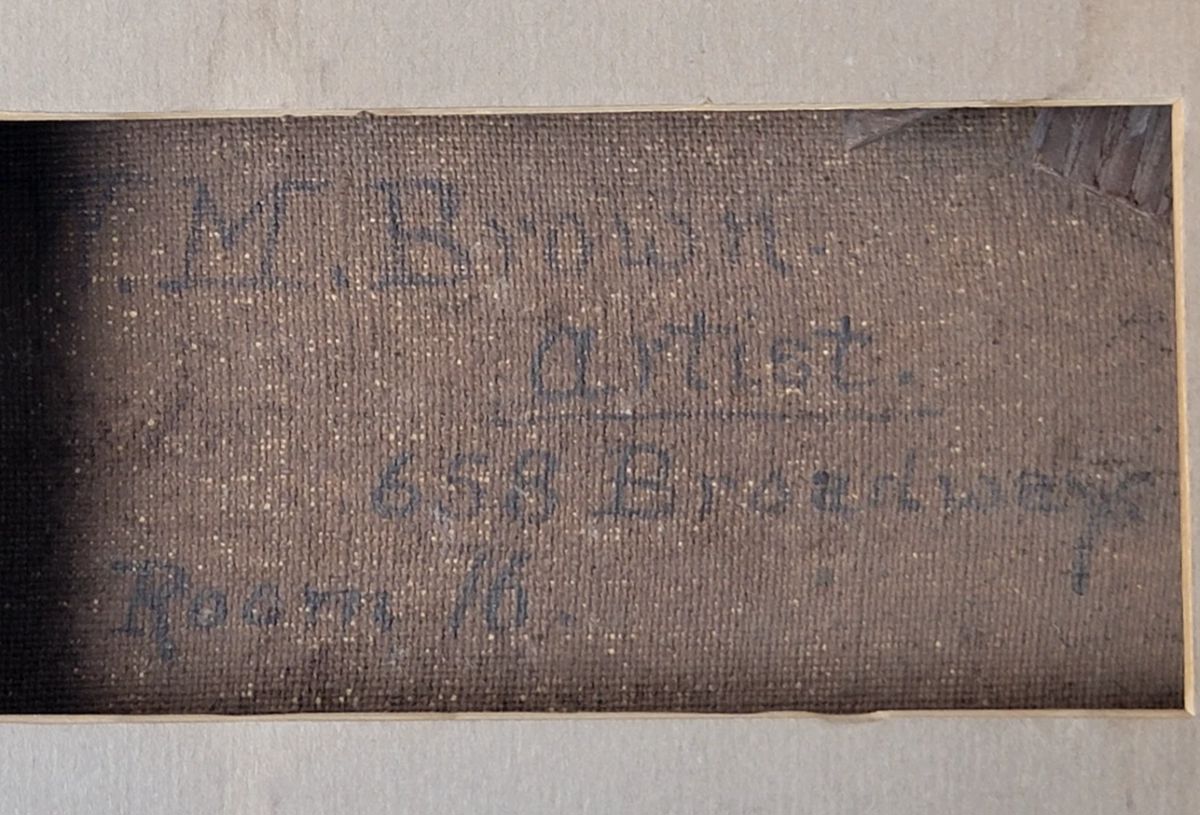 . M. Brown.
artist.
658 Broadway
Room 16.